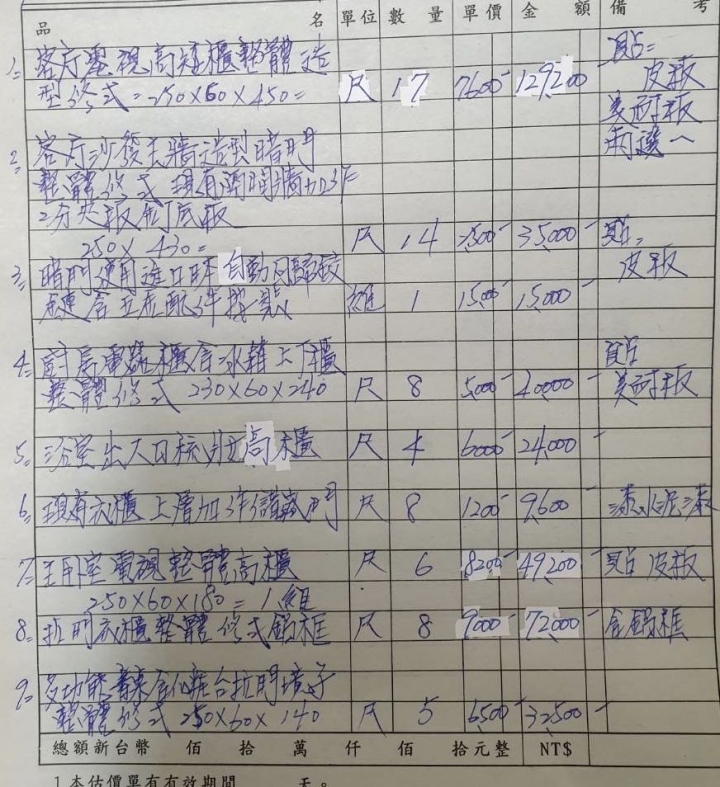 品 名 單位 數 量 單價 金 額 備 考
1= 客厅電視高矮櫃整體造 貼=
型修式=250×60×450= 尺 17 7600 129,200 皮板
美耐板
2= 客厅沙發主牆造型暗門 兩選一
整體修式 現有開門牆加作
2分夾板釘底板
250×430= 尺 14 2500 35,000 貼=
3= 暗門運用進口 自動回歸鉸 皮板
鏈含五金配件按裝 組 1 15,000 15,000
4= 廚房電器櫃含冰箱上下櫃 貼
整體修式 230×60×240 尺 8 5,000 40,000 美耐板
5= 浴室出入口 高櫃 尺 4 6000 24,000
6= 現有衣櫃上層加作 門 尺 8 1200 9,600 漆水泥漆
7= 主臥室電視整體高櫃 尺 6 8200 49,200 貼皮板
250×60×180=1組
8= 拉門衣櫃整體修式鋁框 尺 8 9000 72,000 含鋁框
9= 多功能 含化粧台拉門鏡子
整體修式 250×60×140 尺 5 6500 32,500
總額新台幣 佰 拾 萬 仟 佰 拾元整 NT$
1.本估價單有有效期間 天。